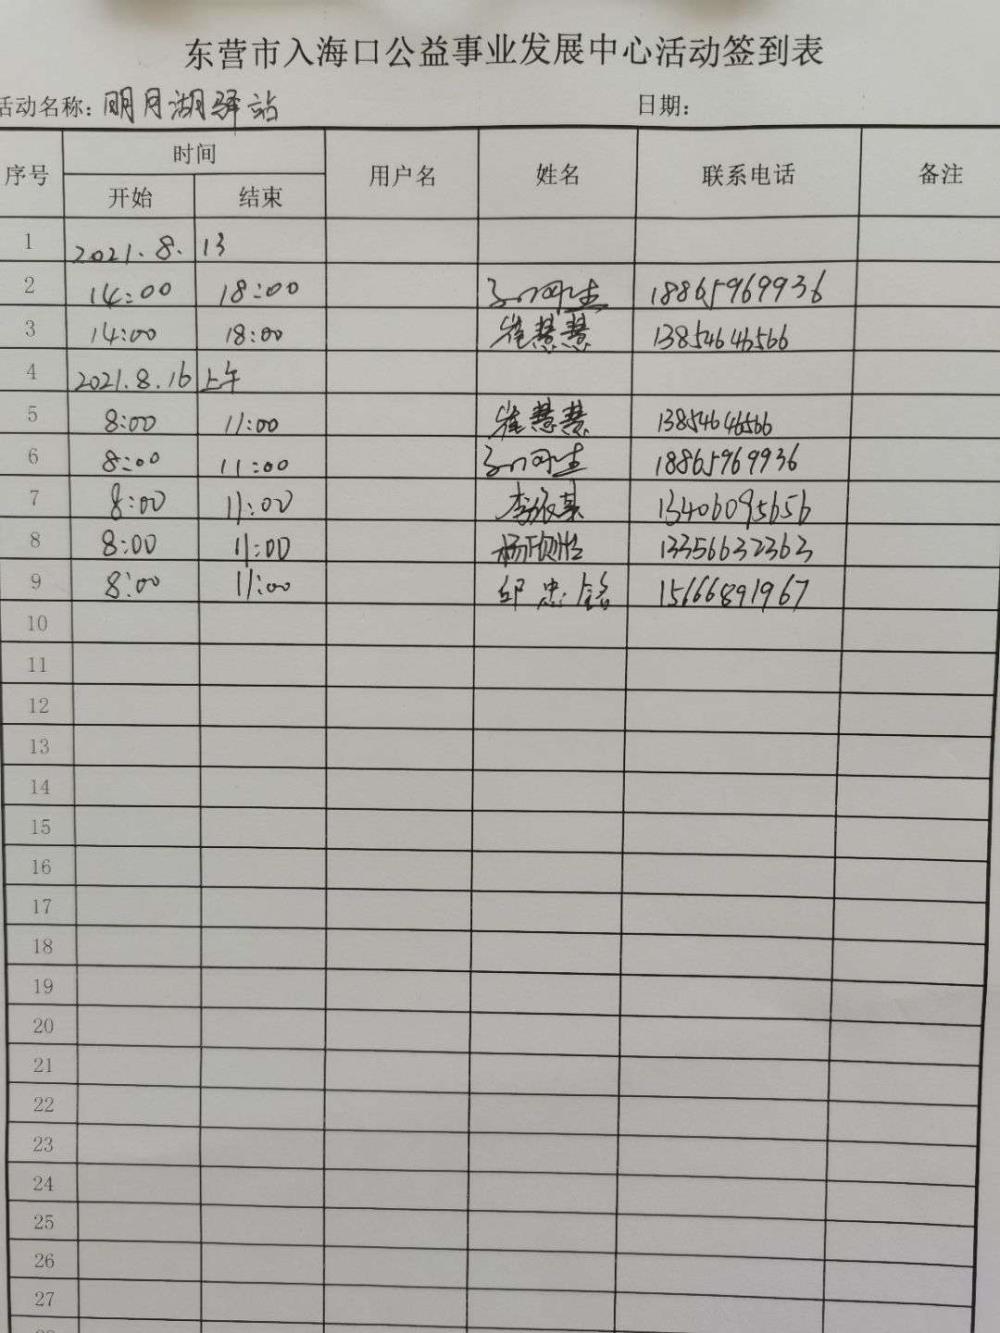 东营市入海口公益事业发展中心活动签到表
活动名称: 明月湖驿站 日期:
序号 时间 用户名 姓名 联系电话 备注
开始 结束
1 2021.8.13
2 14:00 18:00 18865969936
3 14:00 18:00 崔慧慧 13854646566
4 2021.8.16 上午
5 8:00 11:00 崔慧慧 13854646566
6 8:00 11:00 18865969936
7 8:00 11:00 13406095656
8 8:00 11:00 13356632363
9 8:00 11:00 邱忠铭 15666891967
10
11
12
13
14
15
16
17
18
19
20
21
22
23
24
25
26
27